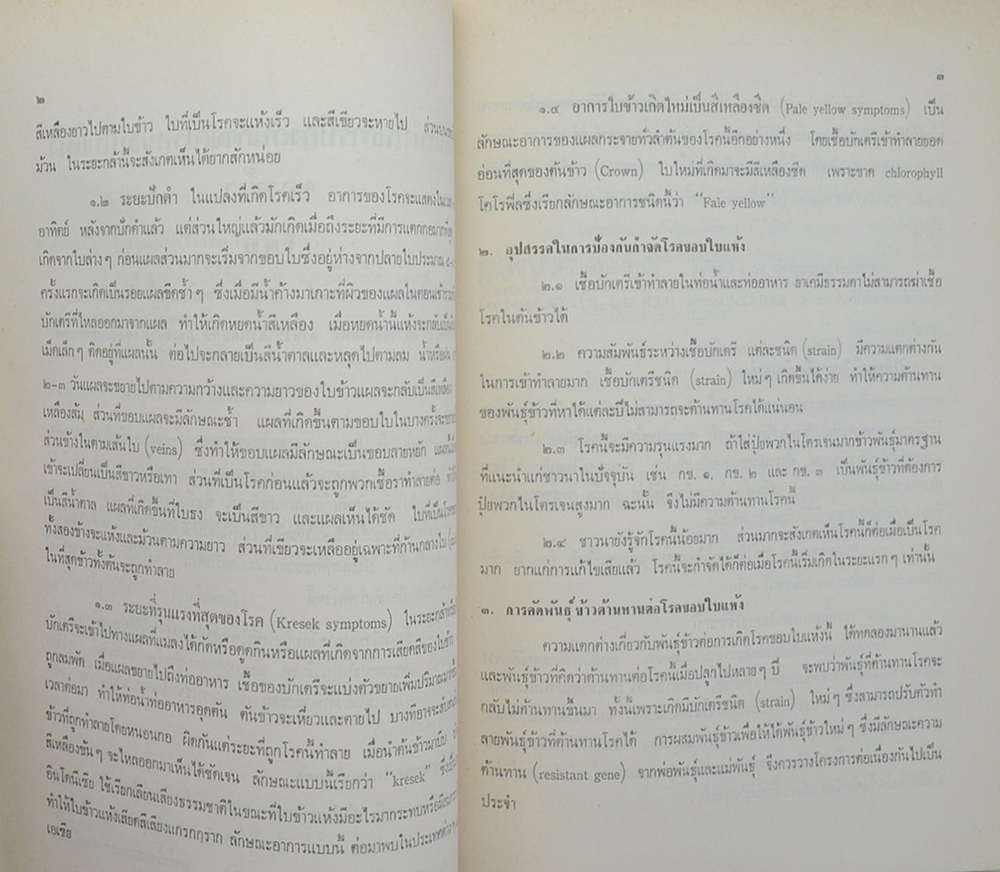 ๒
สีเหลืองยาวไปตามใบข้าว ใบที่เป็นโรคจะแห้งเร็ว และสีเขียวจะหายไป
ม้วน ในระยะกล้านี้จะสังเกตเห็นได้ยากสักหน่อย
๑.๒ ระยะปักดำ ในแปลงที่เกิดโรคเร็ว อาการของโรคจะแสดงใน
อาทิตย์ หลังจากปักดำแล้ว แต่ส่วนใหญ่แล้วมักเกิดเมื่อถึงระยะที่มีการแตกกอ
เกิดจากใบล่างๆ ก่อนแผลส่วนมากจะเริ่มจากขอบใบซึ่งอยู่ห่างจากปลายใบประมาณ
ครั้งแรกจะเกิดเป็นรอยแผลขีดช้ำๆ ซึ่งเมื่อมีน้ำค้างมาเกาะที่ผิวของแผลในตอนเช้า
บักเตรีที่ไหลออกมาจากแผล ทำให้เกิดหยดน้ำสีเหลือง เมื่อหยดน้ำนี้แห้งจะกลับเป็น
เม็ดเล็กๆ ติดอยู่ที่แผลนั้น ต่อไปจะกลายเป็นสีน้ำตาลและหลุดไปตามลม
๒-๓ วันแผลจะขยายไปตามความกว้างและความยาวของใบข้าวแผลจะกลับเป็นสีเหลือง
เหลืองส้ม ส่วนที่ขอบแผลจะมีลักษณะช้ำ แผลที่เกิดขึ้นตามขอบใบในบางครั้งจะ
ส่วนข้างในตามเส้นใบ (veins) ซึ่งทำให้ขอบแผลมีลักษณะเป็นขอบลายหยัก
เข้าจะเปลี่ยนเป็นสีขาวหรือเทา ส่วนที่เป็นโรคก่อนแล้วจะถูกพวกเชื้อราทำลายต่อ
เป็นสีน้ำตาล แผลที่เกิดขึ้นที่ใบธง จะเป็นสีขาว และแผลเห็นได้ชัด ใบที่เป็นโรค
ทั้งสองข้างจะแห้งและม้วนตามความยาว ส่วนที่เขียวจะเหลืออยู่เฉพาะที่ก้านกลางใบ
ในที่สุดข้าวทั้งต้นจะถูกทำลาย
๑.๓ ระยะที่รุนแรงที่สุดของโรค (Kresek symptoms) ในระยะกล้า
บักเตรีจะเข้าไปทางแผลที่แมลงได้กัดหรือดูดกินหรือแผลที่เกิดจากการเสียดสีของใบข้าว
ถูกลมพัด เมื่อแผลขยายไปถึงท่ออาหาร เชื้อของบักเตรีจะแบ่งตัวขยายเพิ่มปริมาณมากขึ้น
เวลาต่อมา ทำให้ท่อน้ำท่ออาหารอุดตัน ต้นข้าวจะเหี่ยวและตายไป บางทีอาจจะ
ข้าวที่ถูกทำลายโดยหนอนกอ ผิดกันแต่ระยะที่ถูกโรคนี้ทำลาย เมื่อนำต้นข้าวมาบีบ
สีเหลืองข้นๆ จะไหลออกมาเห็นได้ชัดเจน ลักษณะแบบนี้เรียกว่า "kresek"
อินโดนีเซีย ใช้เรียกเลียนเสียงธรรมชาติในขณะที่ใบข้าวแห้งมีอะไรมากระทบหรือ
ทำให้ใบข้าวแห้งเสียดสีเสียงแกรกกราก ลักษณะอาการแบบนี้ ต่อมาพบในประเทศต่างๆ
เอเซีย
๓
๑.๔ อาการใบข้าวเกิดใหม่เป็นสีเหลืองซีด (Pale yellow symptoms) เป็น
ลักษณะอาการของแผลกระจายทั่วลำต้นของโรคนี้อีกอย่างหนึ่ง โดยเชื้อบักเตรีเข้าทำลายยอด
อ่อนที่สุดของต้นข้าว (Crown) ใบใหม่ที่เกิดมาจะมีสีเหลืองซีด เพราะขาด chlorophyll
โคโรฟีลซึ่งเรียกลักษณะอาการชนิดนี้ว่า "Fale yellow"
๒. อุปสรรคในการป้องกันกำจัดโรคขอบใบแห้ง
๒.๑ เชื้อบักเตรีเข้าทำลายในท่อน้ำและท่ออาหาร ยาเคมีธรรมดาไม่สามารถฆ่าเชื้อ
โรคในต้นข้าวได้
๒.๒ ความสัมพันธ์ระหว่างเชื้อบักเตรี แต่ละชนิด (strain) มีความแตกต่างกัน
ในการเข้าทำลายมาก เชื้อบักเตรีชนิด (strain) ใหม่ๆ เกิดขึ้นได้ง่าย ทำให้ความต้านทาน
ของพันธุ์ข้าวที่หาได้แต่ละปีไม่สามารถจะต้านทานโรคได้แน่นอน
๒.๓ โรคนี้จะมีความรุนแรงมาก ถ้าใส่ปุ๋ยพวกไนโตรเจนมากข้าวพันธุ์มาตรฐาน
ที่แนะนำแก่ชาวนาในปัจจุบัน เช่น กข. ๑, กข. ๒ และ กข. ๓ เป็นพันธุ์ข้าวที่ต้องการ
ปุ๋ยพวกไนโตรเจนสูงมาก ฉะนั้น จึงไม่มีความต้านทานโรคนี้
๒.๔ ชาวนายังรู้จักโรคนี้น้อยมาก ส่วนมากจะสังเกตเห็นโรคนี้ก็ต่อเมื่อเป็นโรค
มาก ยากแก่การแก้ไขเสียแล้ว โรคนี้จะกำจัดได้ก็ต่อเมื่อโรคนี้เริ่มเกิดในระยะแรกๆ เท่านั้น
๓. การคัดพันธุ์ข้าวต้านทานต่อโรคขอบใบแห้ง
ความแตกต่างเกี่ยวกับพันธุ์ข้าวต่อการเกิดโรคขอบใบแห้งนี้ ได้ทดลองมานานแล้ว
และพันธุ์ข้าวที่คิดว่าต้านทานต่อโรคนี้เมื่อปลูกไปหลายๆ ปี จะพบว่าพันธุ์ที่ต้านทานโรคจะ
กลับไม่ต้านทานขึ้นมา ทั้งนี้เพราะเกิดมีบักเตรีชนิด (strain) ใหม่ๆ ซึ่งสามารถปรับตัวทำ
ลายพันธุ์ข้าวที่ต้านทานโรคได้ การผสมพันธุ์ข้าวเพื่อให้ได้พันธุ์ข้าวใหม่ๆ ซึ่งมีลักษณะความ
ต้านทาน (resistant gene) จากพ่อพันธุ์และแม่พันธุ์ จึงควรวางโครงการต่อเนื่องกันไปเป็น
ประจำ